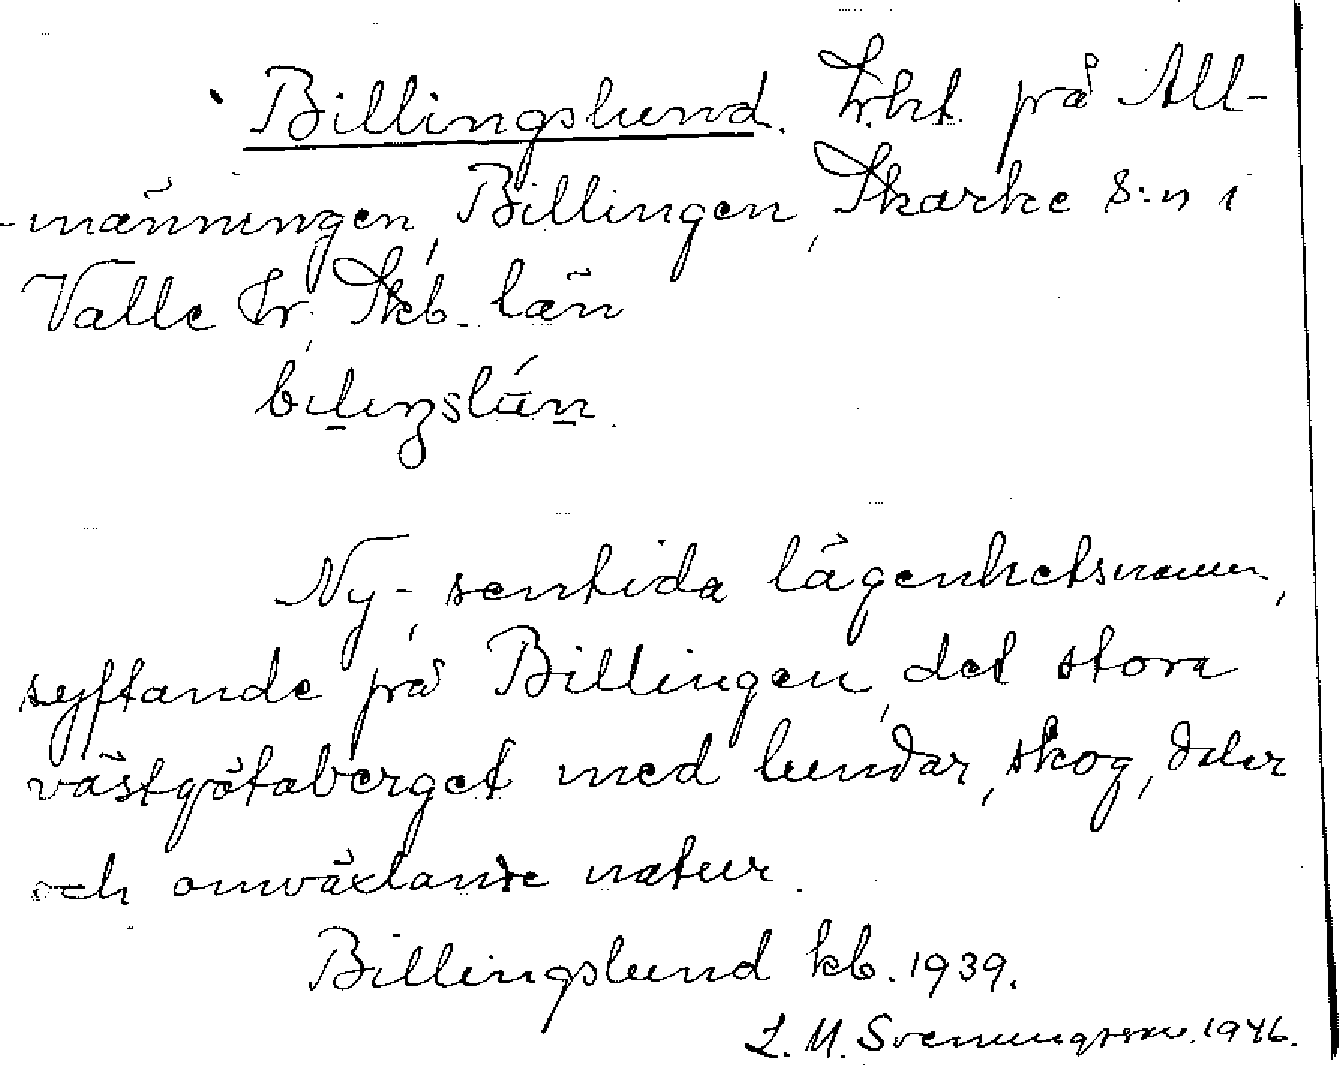 Billingslund. Lht. på All-
-männingen, Billingen, Skarke s:n i
Valle hr, Skb. län
bilıŋslún.
Ny-, sentida lägenhetsnamn,
syftande på Billingen, det stora
västgötaberget med lundar, skog, dalar
och omväxlande natur.
Billingslund kb. 1939.
L. M. Svenungsson. 1946.